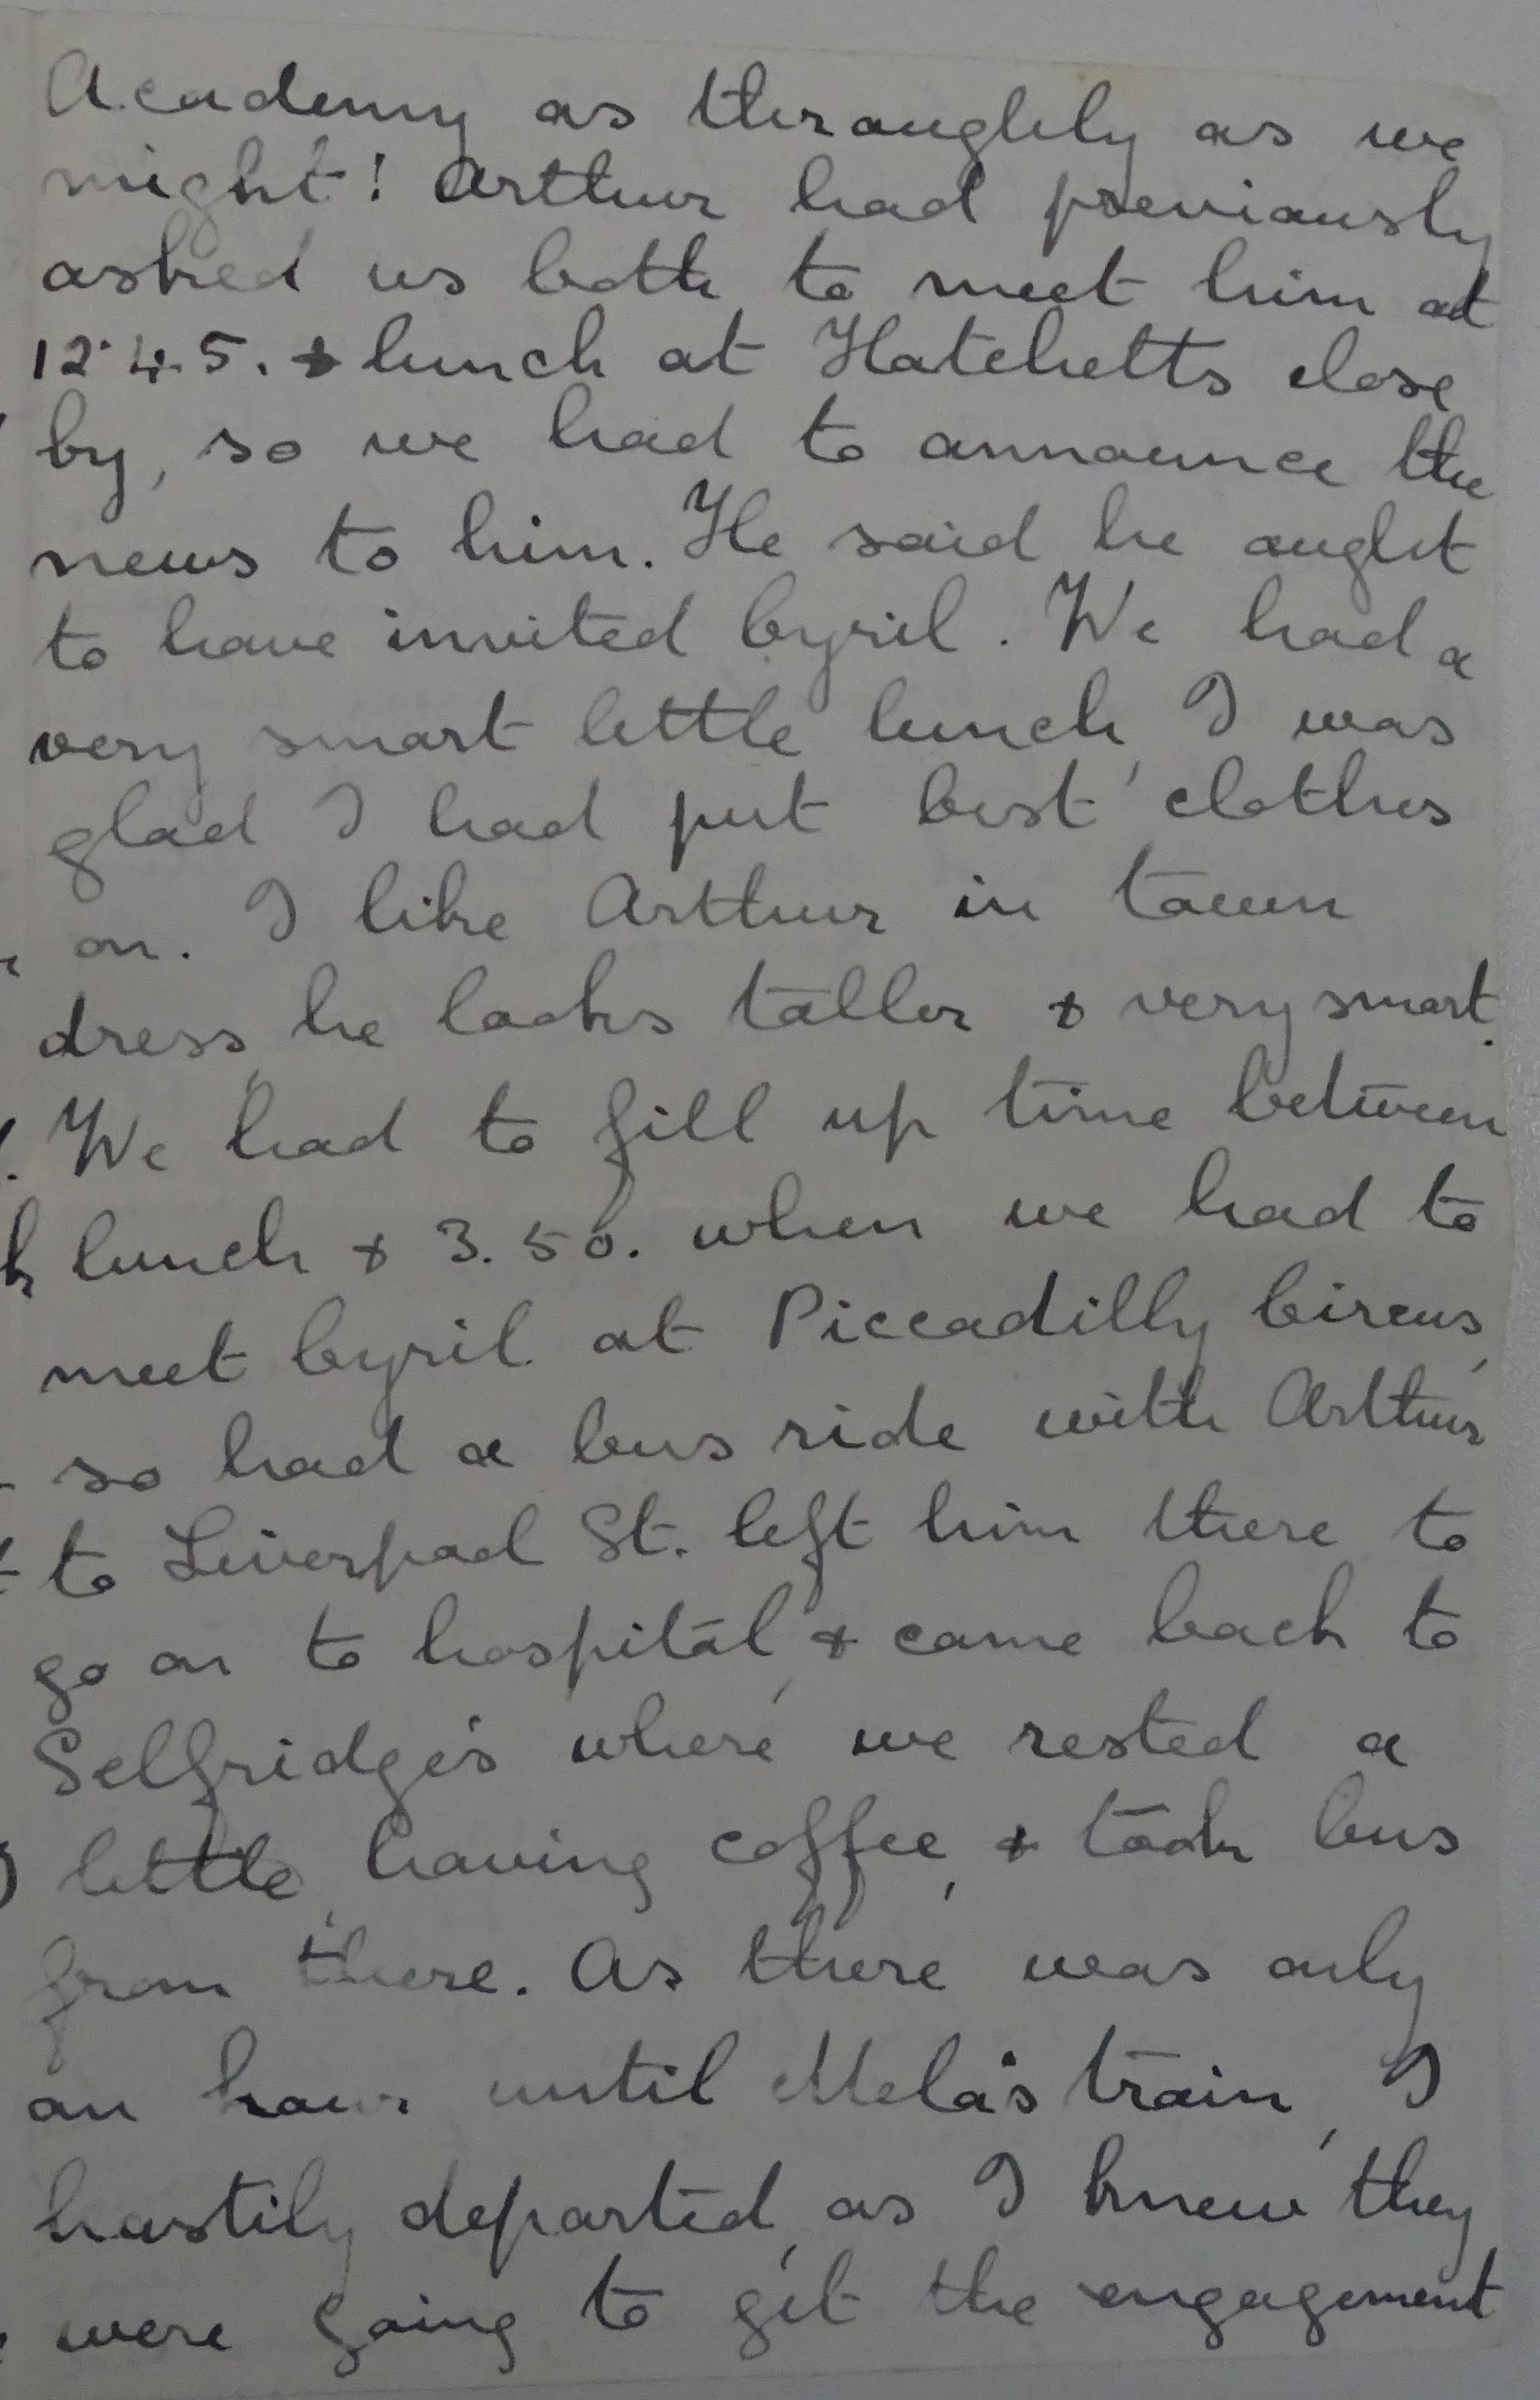 Academy as thoroughly as we
might! Arthur had previously
asked us both to meet him at
12.45. & lunch at Hatchetts close
by, so we had to announce the
news to him. He said he ought
to have invited Cyril. We had a
very smart little lunch, I was
glad I had put best clothes
on. I like Arthur in town
dress, he looks taller & very smart.
We had to fill up time between
lunch & 3.50. when we had to
meet Cyril at Piccadilly Circus,
so had a bus ride with Arthur
to Liverpool St. left him there to
go on to hospital, & came back to
Selfridge's where we rested a
little, having coffee, & took bus
from there. As there was only
an hour until Mela's train, I
hastily departed, as I knew they
were going to get the engagement